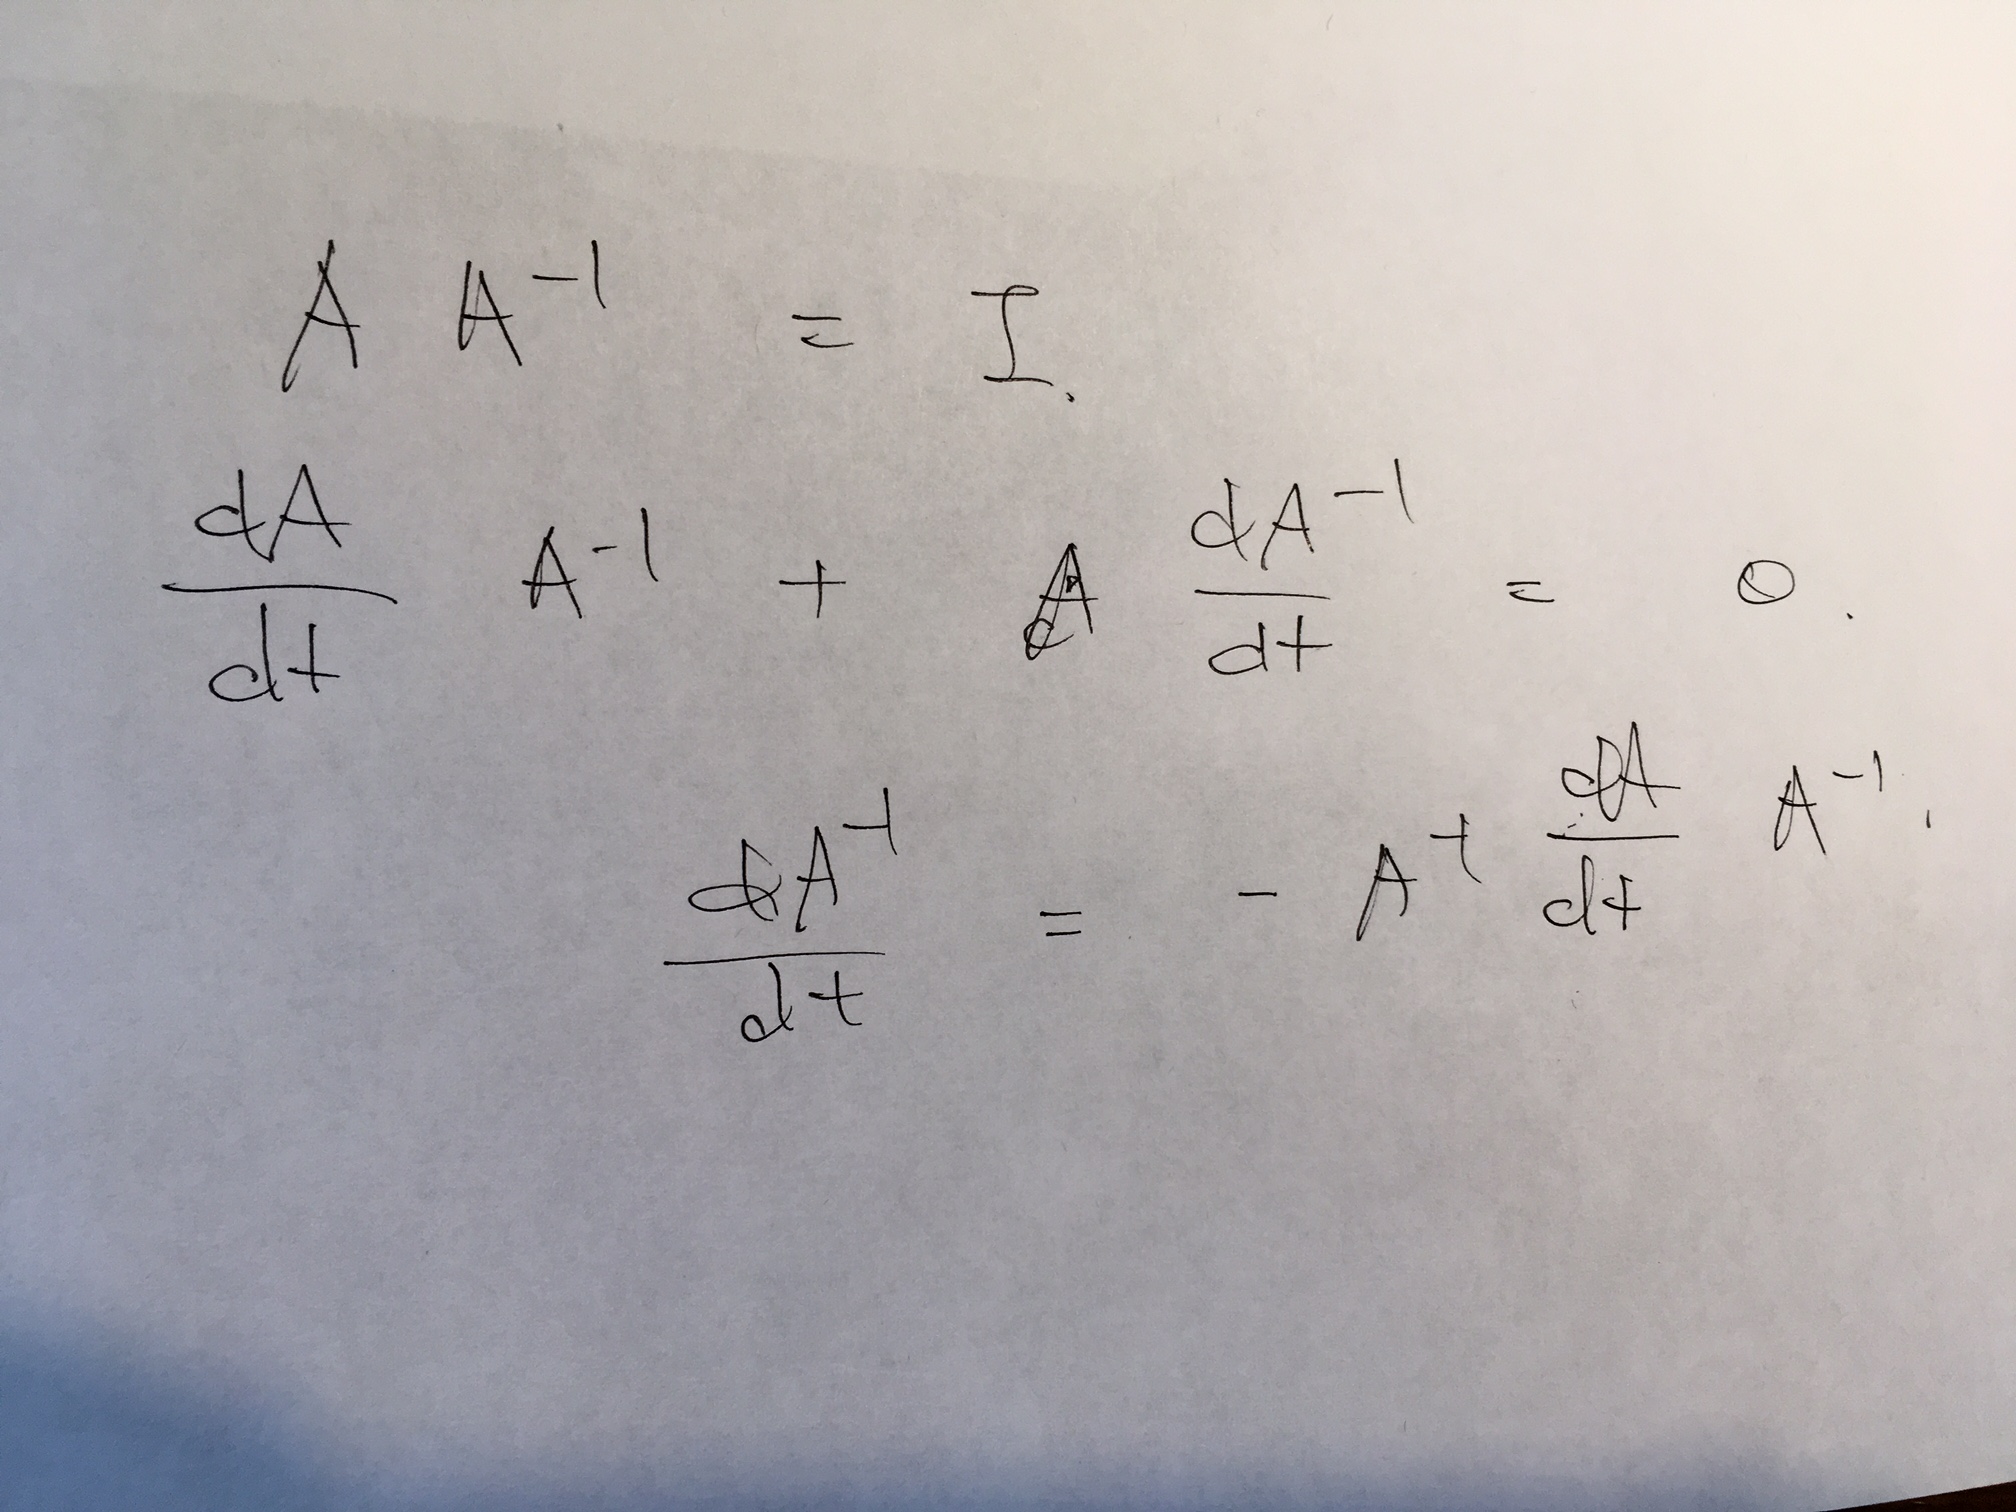 A A⁻¹ = I.
dA/dt A⁻¹ + A dA⁻¹/dt = 0.
dA⁻¹/dt = - A⁻¹ dA/dt A⁻¹.